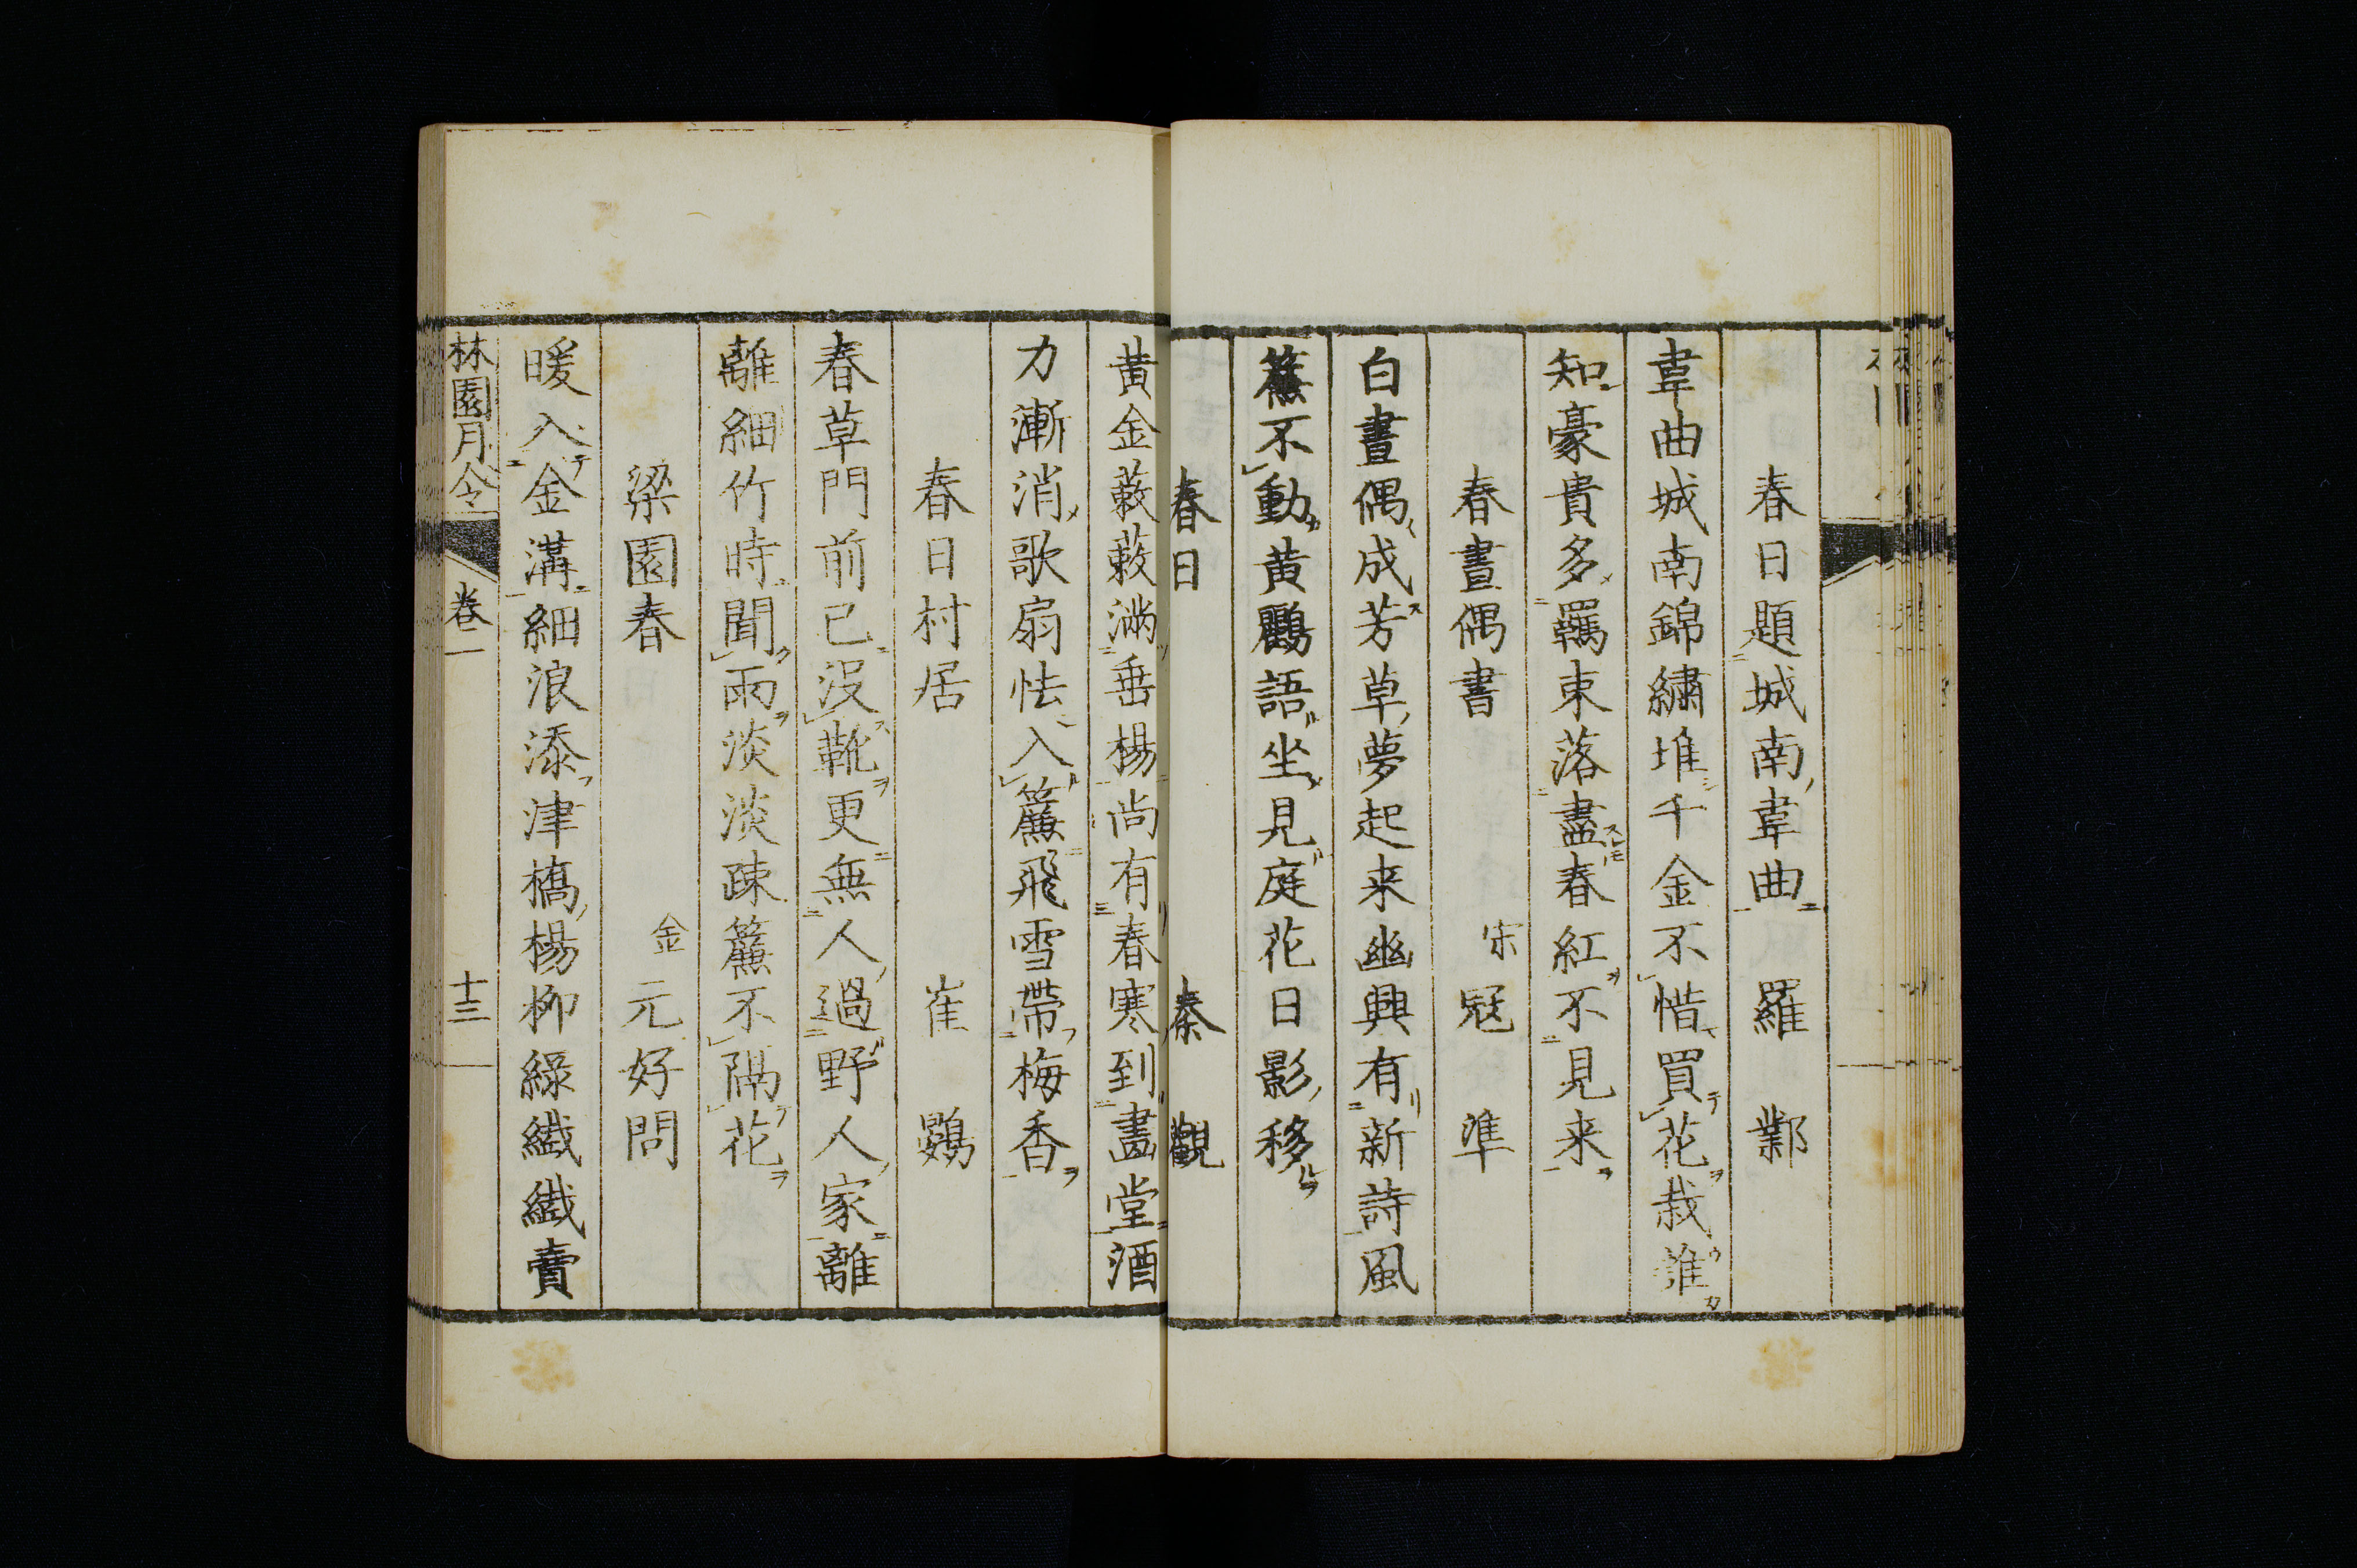 春日題城南韋曲　羅鄴
韋曲城南錦繡堆千金不惜買花栽誰
知豪貴多羈束落盡春紅不見来
春晝偶書　宋　冦準
白晝偶成芳草夢起来幽興有新詩風
簾不動黄鸝語坐見庭花日影移
春日　秦觀
黄金蔌蔌満垂楊尚有春寒到畫堂酒
力漸消歌扇怯入簾飛雪帶梅香
春日村居　崔鷃
春草門前已没靴更無人過野人家離
離細竹時聞雨淡淡疎簾不隔花
梁園春　金　元好問
暖入金溝細浪添津橋楊柳綠纖纖賣
林園月令　卷一　十三